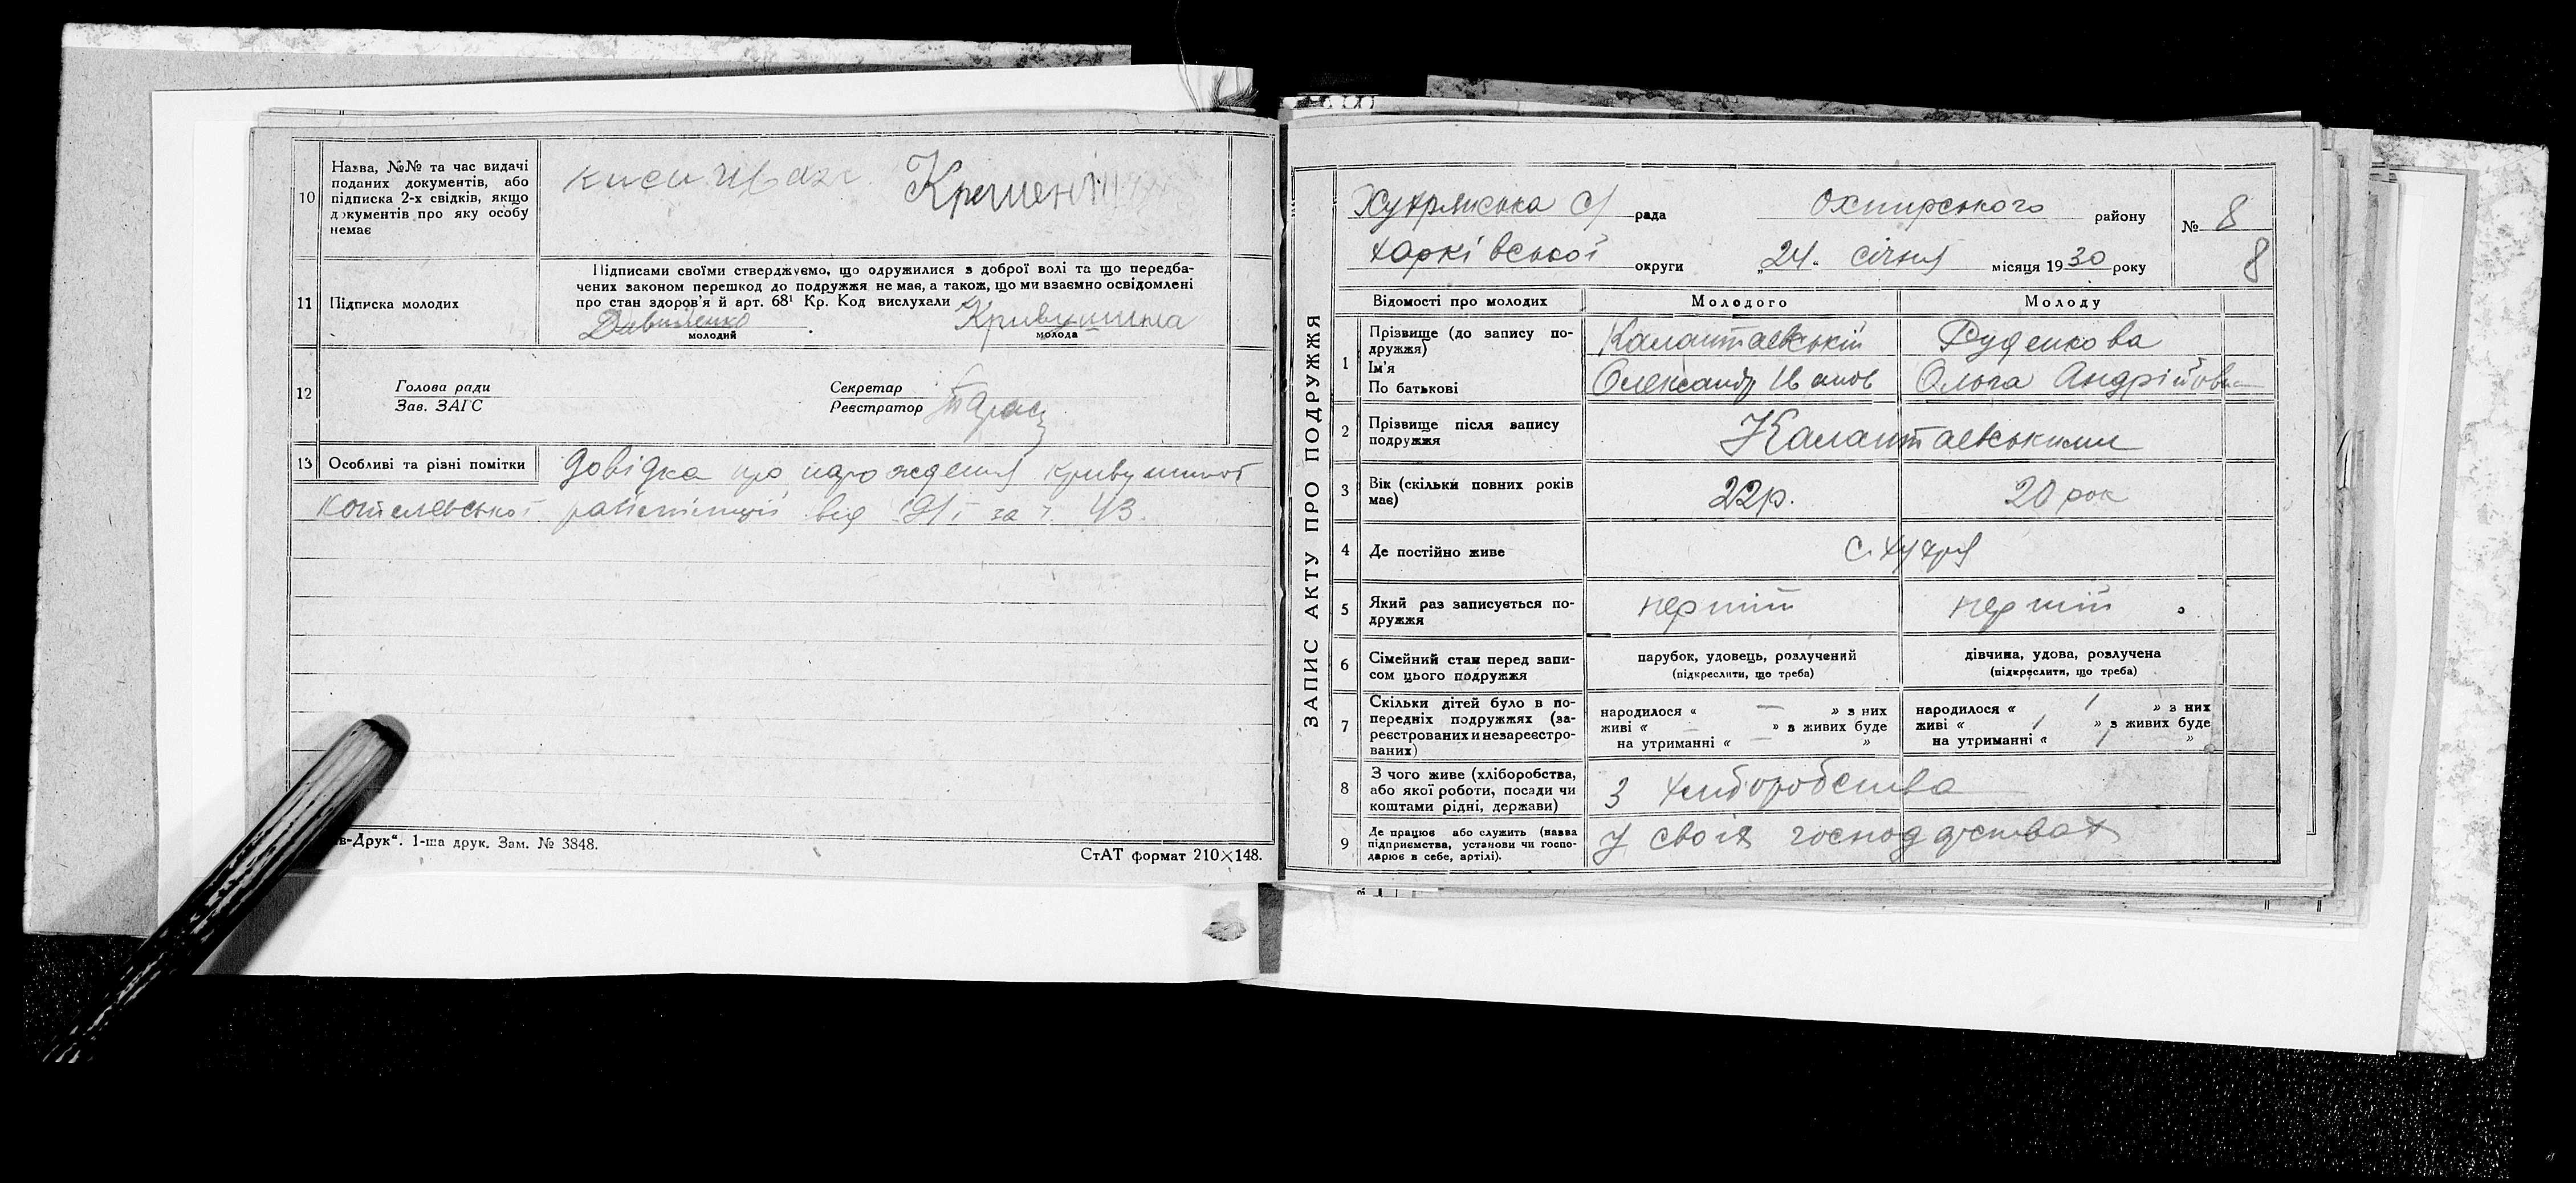 10
Назва, №№ та час видачі
поданих документів, або
підписка 2-х свідків, якщо
документів про яку особу
немає
11
Підписка молодих
Підписами своїми стверджуємо, що одружилися з доброї волі та що передба-
чених законом перешкод до подружжя не має, а також, що ми взаємно освідомлені
про стан здоров'я й арт. 68¹ Кр. Код вислухали
молодий
молода
12
Голова ради
Зав. ЗАГС
Секретар
Реєстратор
13 Особливі та різні помітки
Довідка про
Котелевської від за
в-Друк“. 1-ша друк. Зам. № 3848.
СтАТ формат 210×148.
ЗАПИС АКТУ ПРО ПОДРУЖЖЯ
рада району № 8
Харківської округи „24“ січня місяця 1930 року 8
Відомості про молодих Молодого Молоду
1
Прізвище (до запису по-
дружжя)
Ім'я
По батькові
Калантаєвській Руденкова
Олександр Іванов Ольга Андрійовна
2
Прізвище після запису
подружжя
Калантаєвськими
3
Вік (скільки повних років
має)
22р. 20 рок
4
Де постійно живе
с. Хухря
5
Який раз записується по-
дружжя
перший перший
6
Сімейний стан перед запи-
сом цього подружжя
парубок, удовець, розлучений
(підкреслити, що треба)
дівчина, удова, розлучена
(підкреслити, що треба)
7
Скільки дітей було в по-
передніх подружжях (за-
реєстрованих и незареєстро-
ваних)
народилося « — » з них
живі « — » з живих буде
на утриманні « — »
народилося « / » з них
живі « / » з живих буде
на утриманні « / »
8
З чого живе (хліборобства,
або якої роботи, посади чи
коштами рідні, держави)
З хліборобства
9
Де працює або служить (назва
підприємства, установи чи госпо-
дарює в себе, артілі).
У своїх